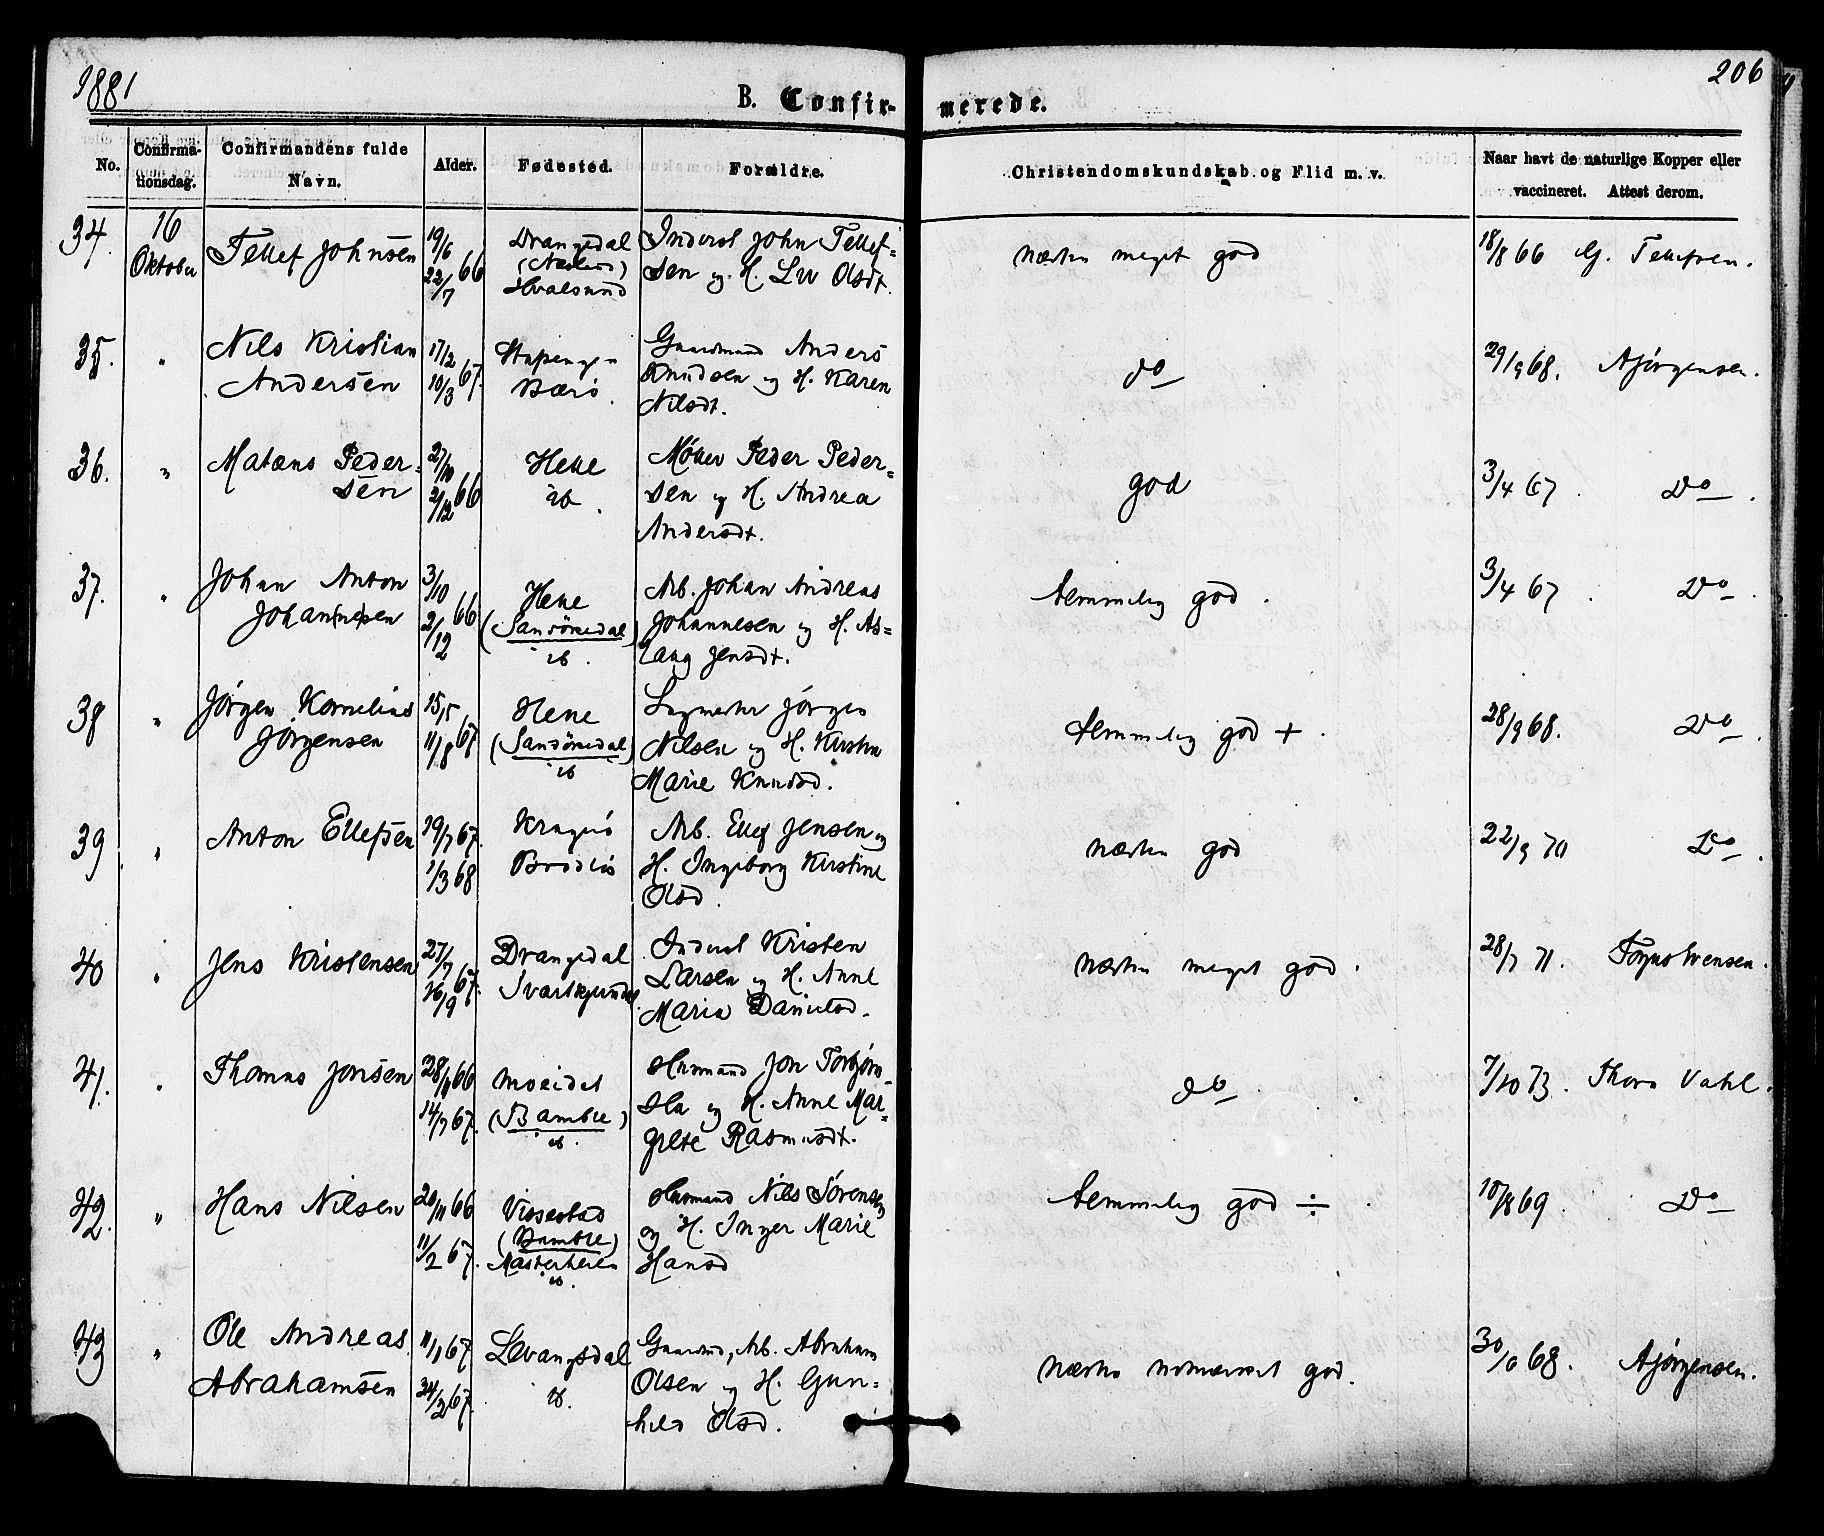 1881
206
B. Confir- merede.
No. Confirma-tionsdag. Confirmandens fulde Navn. Alder. Fødested. Forældre. Christendomskundskab og Flid m. v. Naar havt de naturlige Kopper eller vaccineret. Attest derom.
34. 16 Oktober
Tellef Johnsen
19/6 66
22/7
Drangedal
Hvalsund
Inderst John Tellef-
sen og H. Liv Olsdt.
næsten meget god
18/8 66 G. Tellefsen.
35. "
Nils Kristian
Andersen
17/2 67.
10/3
Stupengen
Bærø.
Gaardmand Anders
Knudsen og H. Karen
Nilsdt.
do
29/9 68. AJørgensen.
36. "
Matæus Peder-
sen
27/10 66
2/12
Helle
ib.
Møller Peder Peder-
sen og H. Andrea
Andersdt.
god
3/4 67. Do.
37. "
Johan Anton
Johan(ne)sen
3/10 66
2/12
Helle
(Sandøkedal)
ib.
Arb. Johan Andreas
Johannesen og H. As-
laug Jensdt.
temmelig god.
3/4 67. Do.
38 "
Jørgen Kornelius
Jørgensen
15/5 67
11/8
Helle
(Sandøkedal)
ib
Jørgen
Nilsen og H. Kirstine
Marie Knudsd.
temmelig god +.
28/9 68. Do.
39. "
Anton Ellefsen
19/7 67.
1/3 68
Kragerø
Arb. Ellef Jensen og
H. Ingeborg Kirstine
Olsd.
næsten god
22/9 70 Do.
40 "
Jens Kristensen
27/7 67.
16/9
Drangedal
Inderst Kristen
Larsen og H. Anne
Maria Danielsd.
næsten meget god.
28/7 71.
41. "
Thomas Jonsen
28/11 66
14/7 67.
Moeidet
(Bamble)
ib.
Husmand Jon Torbjørn-
sen og H. Anne Mar-
grete Rasmusdt.
do.
7/10 73. Thora Vahl.
42. "
Hans Nilsen
20/11 66
11/2 67.
Vissestad
(Bamble)
ib.
Husmand Nils Sørensen
og H. Inger Marie
Hansd
temmelig god ÷.
10/8 69. Do
43 "
Ole Andreas
Abrahamsen
11/1 67
24/2 67.
Levangsdal
ib.
Arb. Abraham
Olsen og H. Gun-
hild Olsd.
næsten god.
68. AJørgensen.